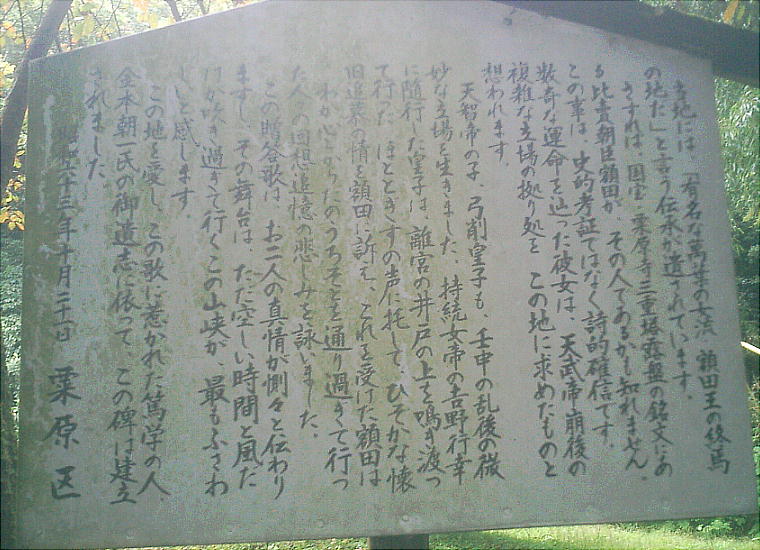 当地には「有名な萬葉の女流 額田王の終焉
の地だ」と言う伝承が遺されています。
さすれば、国宝 粟原寺三重塔露盤の銘文にあ
る比賣朝臣額田が、その人であるかも知れません。
この事は、史的考証ではなく詩的確信です。
数奇な運命を辿った彼女は、天武帝崩後の
複雑な立場の拠り処を この地に求めたものと
想われます
天智帝の子、弓削皇子も、壬申の乱後の微
妙な立場を生きました。持統女帝の吉野行幸
に随行した皇子は、離宮の井戸の上を鳴き渡っ
て行った ほととぎすの声に托して、ひそかな懐
旧追慕の情を額田に訴え、これを受けた額田は
わが心とからだのうちそとを通り過ぎて行っ
た人への回想、追憶の悲しみを詠いました。
この贈答歌は、お二人の真情が惻々と伝わり
ますし、その舞台は、ただ空しい時間と風だ
けが吹き過ぎて行くこの山峡が、最もふさわ
しいと感じます。
この地を愛し、この歌に惹かれた篤学の人、
金本朝一氏の御遺志に依って この碑は建立
されました
昭和六十三年十月二十一日 粟原区